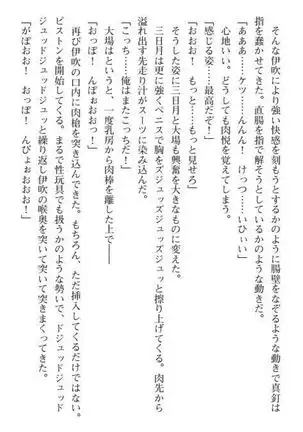 そんな伊吹により強い快感を刻もうとするかのように腸壁をなぞるような動きで真釘は
指を蠢かせてきた。直腸を指で解そうとしているかのような動きだ。
「あああ……ケツ……んんん！　けっつ……いひぃい」
心地いい。どうしても肉悦を覚えてしまう。
「感じる姿……最高だぞ！」
「おお！　もっと……もっと見せろ」
そうした姿に三日月と大場も興奮を大きなものに変えた。
三日月は更に強くペニスで胸をズジュッズジュッズジュッと擦り上げてくる。肉先から
溢れ出す先走り汁がスーツに染み込んだ。
「こっち……俺はまたこっちだ！」
大場はというと、一度乳房から肉棒を離した上で――
「おっぽ！　んぽぉおおっ！」
再び伊吹の口内に肉槍を突き込んできた。もちろん、ただ挿入してくるだけではない。
ピストンを開始してくる。まるで性玩具でも扱うかのような勢いで、ドジュッドジュッド
ジュッドジュッドジュッと繰り返し伊吹の喉奥を突いて突いて突きまくってきた。
「がぽおおっ！　おっぽ！　んぴょぉおおおっ！」